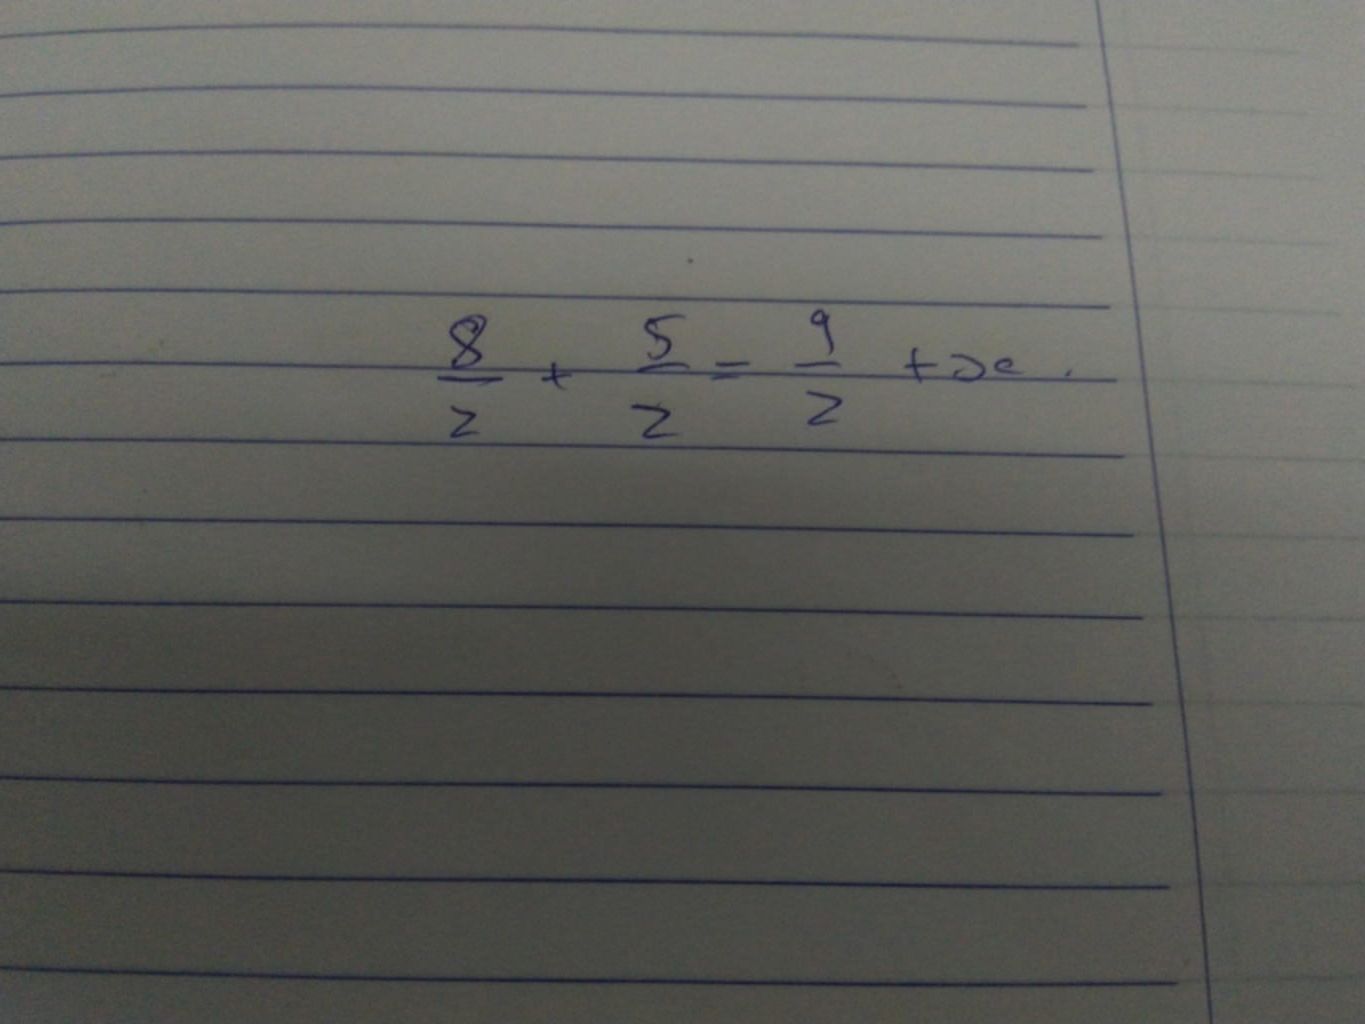 8/2 + 5/2 = 9/2 + x.